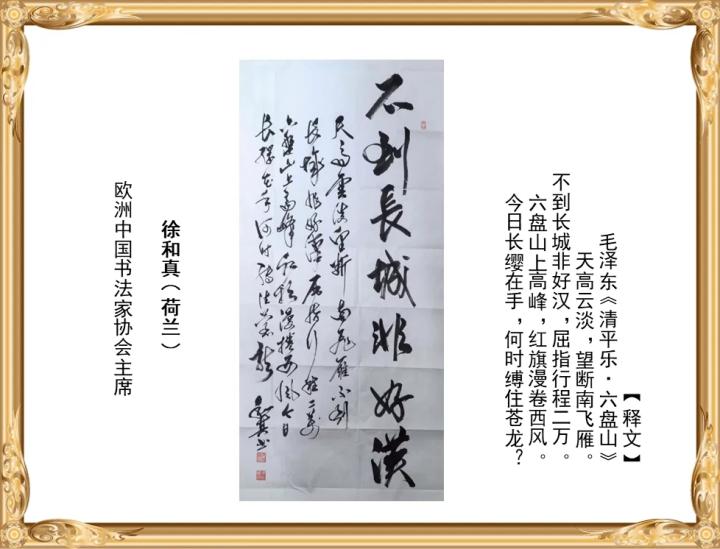 【释文】
毛泽东《清平乐·六盘山》
天高云淡,望断南飞雁。
不到长城非好汉,屈指行程二万。
六盘山上高峰,红旗漫卷西风。
今日长缨在手,何时缚住苍龙?
不到長城非好漢
天高雲淡望斷南飛雁不到
長城非好漢屈指行程二萬
六盤山上高峰紅旗漫捲西風今日
長纓在手何時縛住蒼龍
和真书
徐和真(荷兰)
欧洲中国书法家协会主席